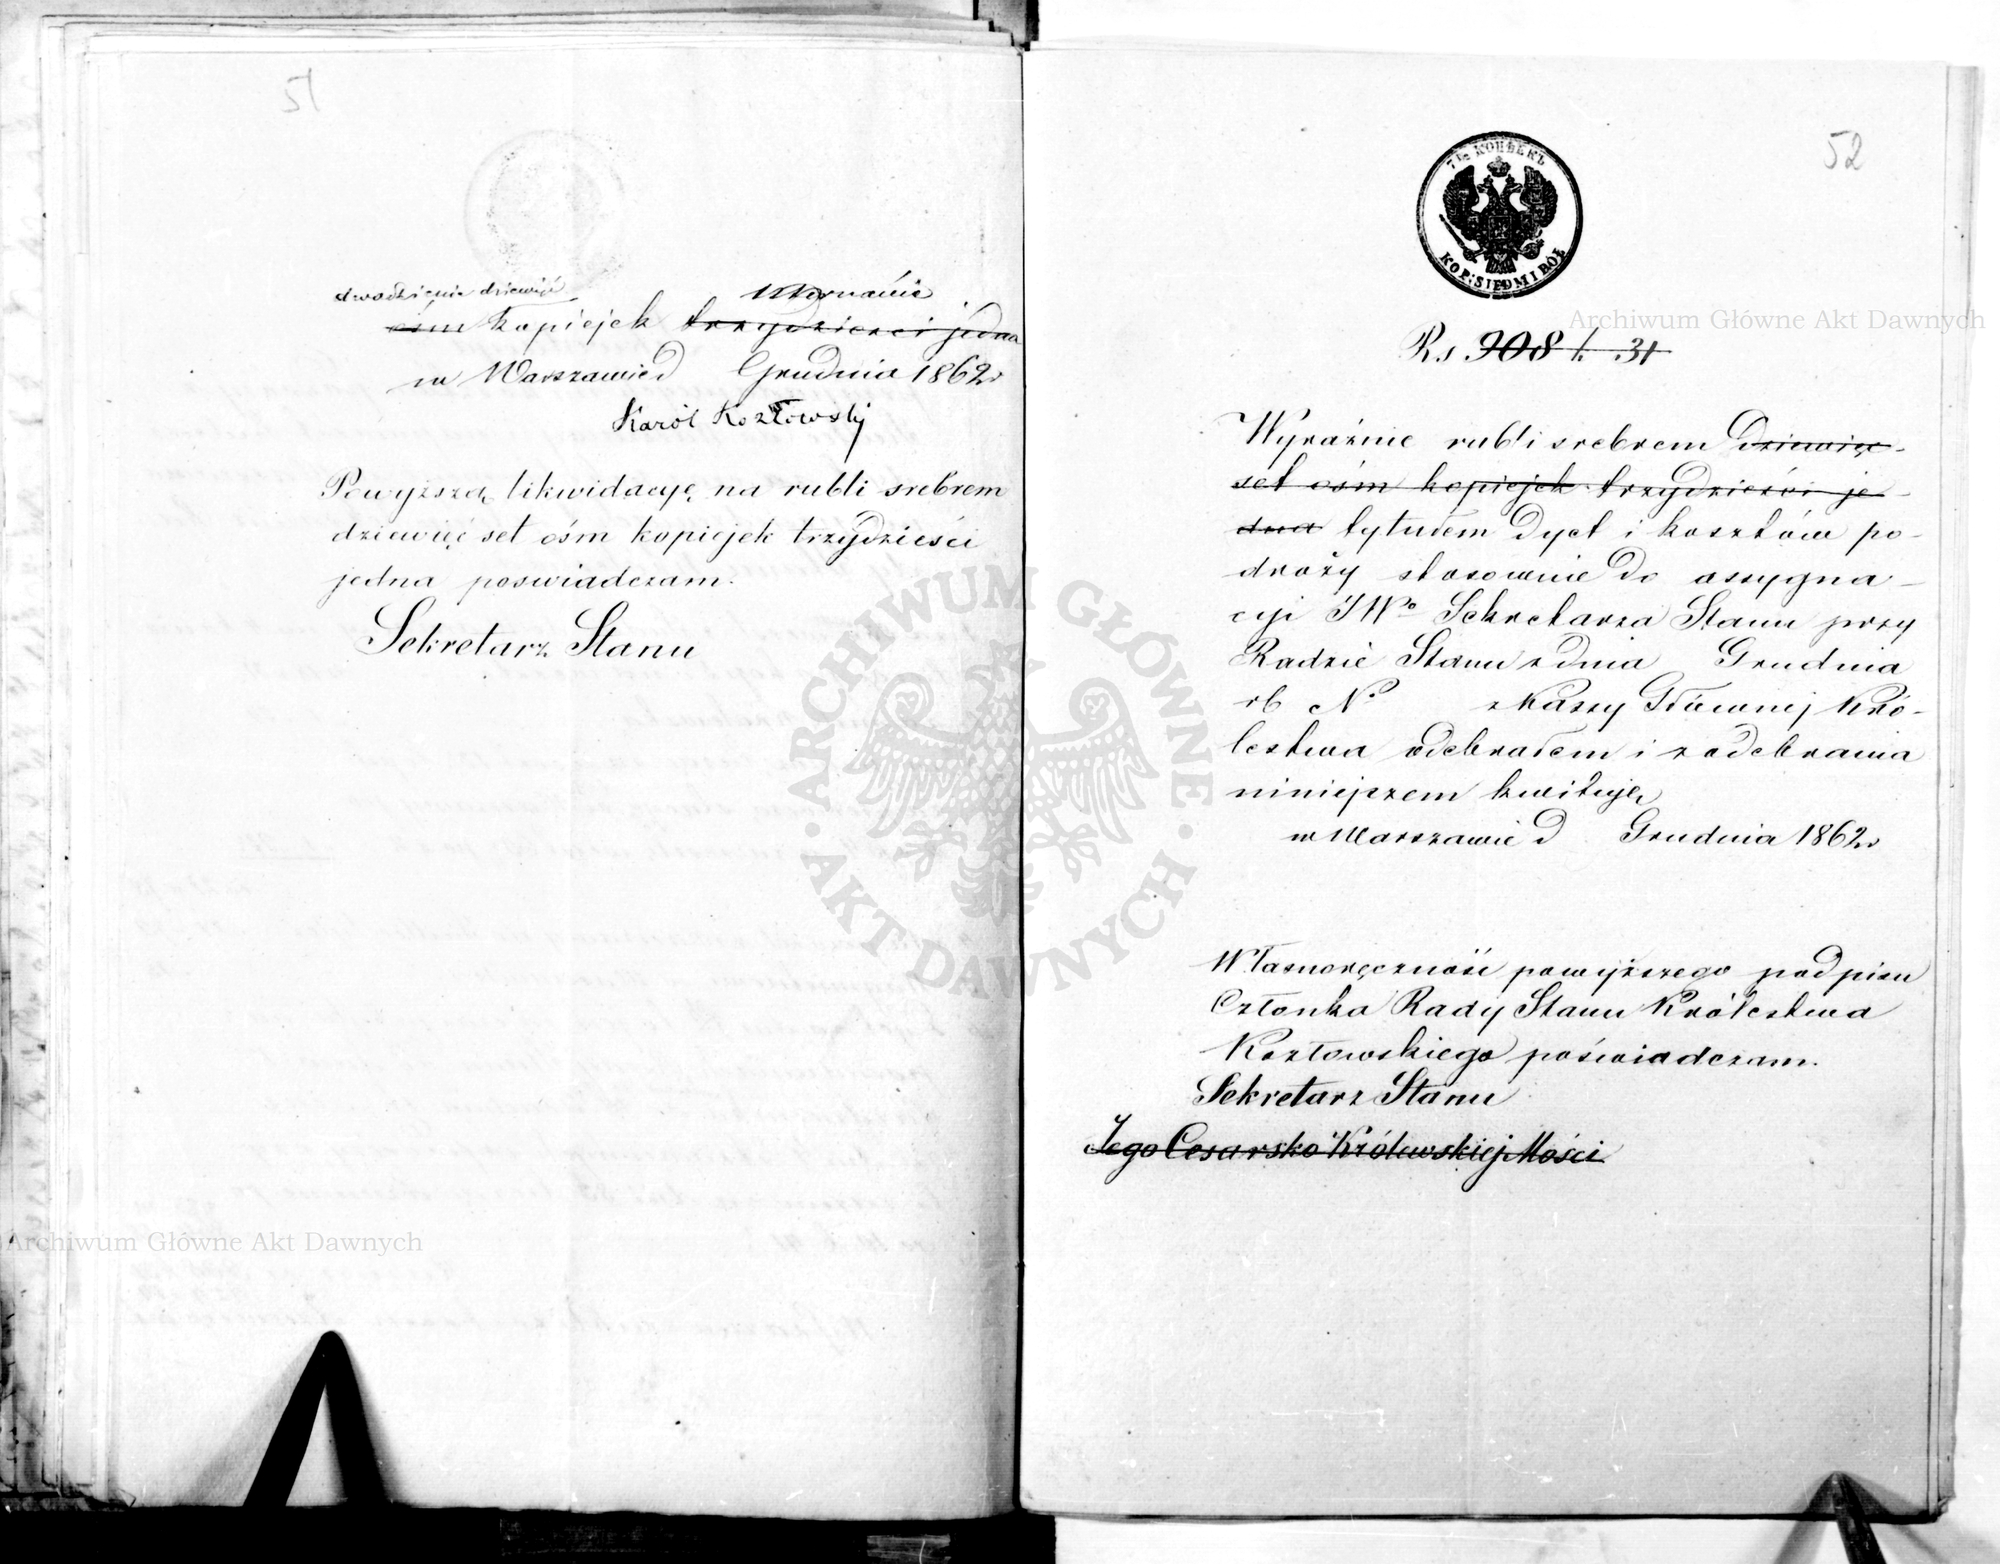 51
dwadzieścia dziewięć
ośm kopiejek trzydzieści jedna
w Warszawie d Grudnia 1862 r
Karól Kozłowski
Powyższą likwidacyę na rubli srebrem
dziewięć set ośm kopiejek trzydzieści
jedna poswiadczam.
Sekretarz Stanu
52
7 1/2 КОПѢЕКЪ
KOP: SIEDM I PÓŁ
Rs. 908 k. 31
Wyraźnie rubli srebrem dziewięć-
set ośm kopiejek trzydzieści je-
dna tytułem dyet i kosztów po-
droży stosownie do assygna-
cyi JWo Sekretarza Stanu przy
Radzie Stanu z dnia Grudnia
rb No z Kassy Głównej Kró-
lestwa odebrałem i z odebrania
niniejszem kwituję
w Warszawie d Grudnia 1862 r
Własnoręczność powyższego podpisu
Członka Rady Stanu Królestwa
Kozłowskiego poświadczam.
Sekretarz Stanu
Jego Cesarsko Królewskiej Mości
Archiwum Główne Akt Dawnych
Archiwum Główne Akt Dawnych
ARCHIWUM GŁÓWNE
AKT DAWNYCH